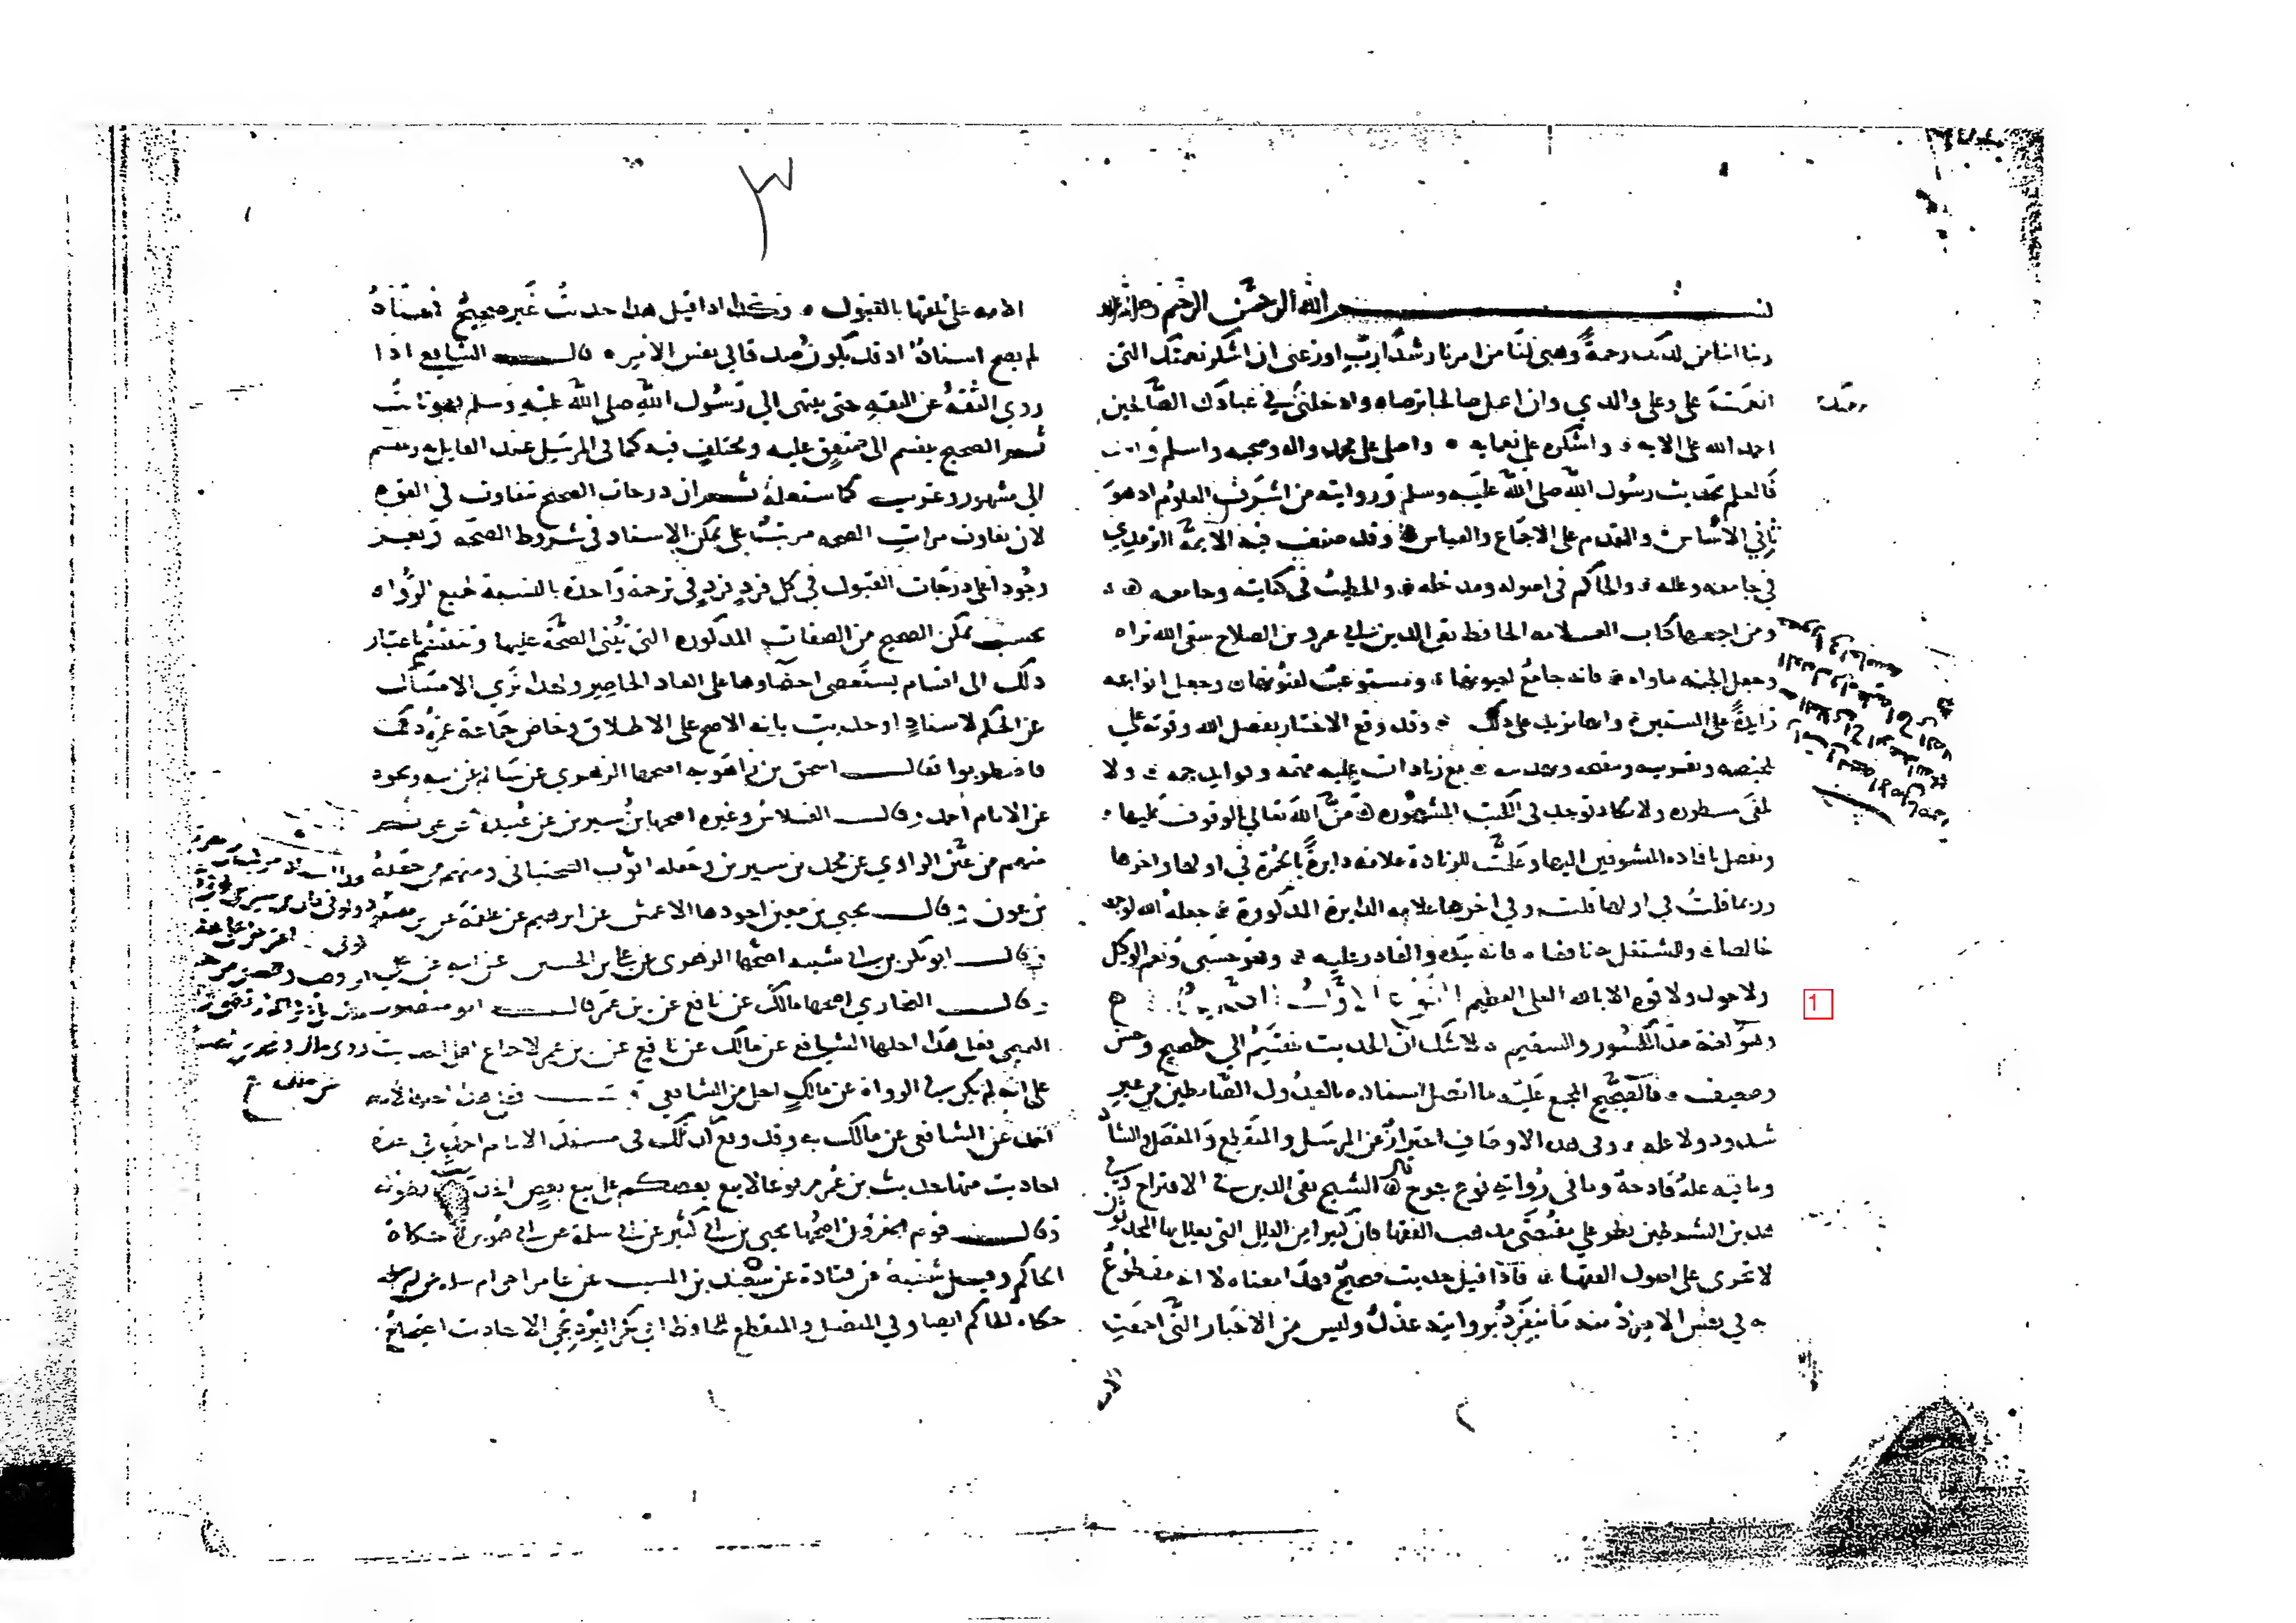 بسم الله الرحمن الرحيم
ربنا اتنا من لدنك رحمة وهيئ لنا من امرنا رشدا رب اوزعني ان اشكر نعمتك التي
انعمت علي وعلى والدي وان اعمل صالحا ترضاه وادخلني في عبادك الصالحين
احمد الله على الايه واشكره على نعمايه واصلي على محمد واله وصحبه واسلم
فالعلم بحديث رسول الله صلى الله عليه وسلم وروايته من اشرف العلوم اذ هو
ثاني الاساس والمقدم على الاجماع والقياس وقد صنف فيه الايمة الترمذي
في جامعه وعلله والحاكم في اصوله ومدخله والخطيب في كفايته وجامعه
ومن اجمعها كتاب العلامه الحافظ تقي الدين بن ابي عمرو بن الصلاح سقى الله ثراه
وجعل الجنه ماواه فانه جامع لعيونها ومستوعب لفنونها وجعل انواعه
زايدة على الستين وانا نزيد على ذلك وقد وقع الاختيار بفضل الله وقوته على
تلخيصه وتقريبه وتنقيحه وتهذيبه مع زيادات عليه مهمه وفوايد جمه ولا
تلفى مسطوره ولا تكاد توجد في الكتب المشهوره فمن الله تعالى بالوقوف عليها
وتفضل بافاده المتشوقين اليها وعلمت للزيادة علامه دايرة بالحمرة في اولها واخرها
وربما قلت في اولها قلت وفي اخرها علامه الدايرة المذكورة جعله الله لوجهه
خالصا والمشتغل به نافعا فانه بيده والقادر عليه وهو حسبي ونعم الوكيل
ولا حول ولا قوه الا بالله العلي العظيم النوع الاول الصحيح
1
وهو لغة ضد المكسور والسقيم لا شك ان الحديث ينقسم الى صحيح وحسن
وضعيف فالصحيح المجمع عليه ما اتصل اسناده بالعدول الضابطين من غير
شذوذ ولا عله وفي هذه الاوصاف احتراز عن المرسل والمنقطع والمعضل والشاذ
وما فيه علة قادحة وما في رواته نوع جرح قال الشيخ تقي الدين في الاقتراح وفي
هذين الشرطين نظر على مقتضى مذهب الفقها فان كثيرا من العلل التي يعلل بها المحدثون
لا تجري على اصول الفقها فاذا قيل حديث صحيح فهذا معناه لا انه مقطوع
به في نفس الامر اذ منه ما ينفرد بروايته عدل وليس من الاخبار التي اجمعت
الامه على تلقيها بالقبول وكذلك اذا قيل هذا حديث غير صحيح فمعناه
لم يصح اسناده اذ قد يكون صدقا في نفس الامر قال الشافعي اذا
روى الثقة عن الثقه حتى ينتهي الى رسول الله صلى الله عليه وسلم فهو ثابت
ثم الصحيح ينقسم الى متفق عليه ومختلف فيه كما في المرسل عند القايل به وينقسم
الى مشهور وغريب كما ستعلمه ثم ان درجات الصحيح تتفاوت في القوه
لان تفاوت مراتب الصحه مرتب على تمكن الاسناد في شروط الصحه ويعز
وجود اعلى درجات القبول في كل فرد فرد في ترجمة واحدة بالنسبة لجميع الرواه
بحسب تمكن الصحيح من الصفات المذكوره التي تبنى الصحة عليها وتنقسم باعتبار
ذلك الى اقسام يستعصي احصاوها على العاد الحاصر ولهذا نرى الامساك
عن الحكم لاسناد او حديث بانه الاصح على الاطلاق وخاض جماعة غمرة ذلك
فاضطربوا فقال اسحق بن راهويه اصحها الزهري عن سالم عن ابيه ونحوه
عن الامام احمد وقال الفلاس وغيره اصحها بن سيرين عن عبيدة عن علي ثم
منهم من عين الراوي عن محمد بن سيرين وجعله ايوب السختياني ومنهم من جعله
بن عون وقال يحيى بن معين اجودها الاعمش عن ابرهيم عن علقمة عن بن مسعود
وقال ابو بكر بن ابي شيبه اصحها الزهري عن علي بن الحسين عن ابيه عن علي
وقال البخاري اصحها مالك عن نافع عن بن عمر قال ابو منصور
التميمي فعلى هذا اجلها الشافعي عن مالك عن نافع عن بن عمر لاجماع اهل الحديث
على انه لم يكن في الرواة عن مالك اجل من الشافعي
احمد عن الشافعي عن مالك وقد وقع ذلك في مسند الامام احمد في عدة
احاديث منها حديث بن عمر مرفوعا لا يبيع بعضكم على بيع بعض
وقال قوم اخرون اصحها يحيى بن ابي كثير عن ابي سلمة عن ابي هريرة حكاه
الحاكم وقيل شعبة عن قتادة عن سعيد بن المسيب عن عامر اخي ام سلمه عن ام سلمه
حكاه الحاكم ايضا وفي المتصل والمنقطع للحافظ ابي بكر البرديجي الاحاديث الصحاح